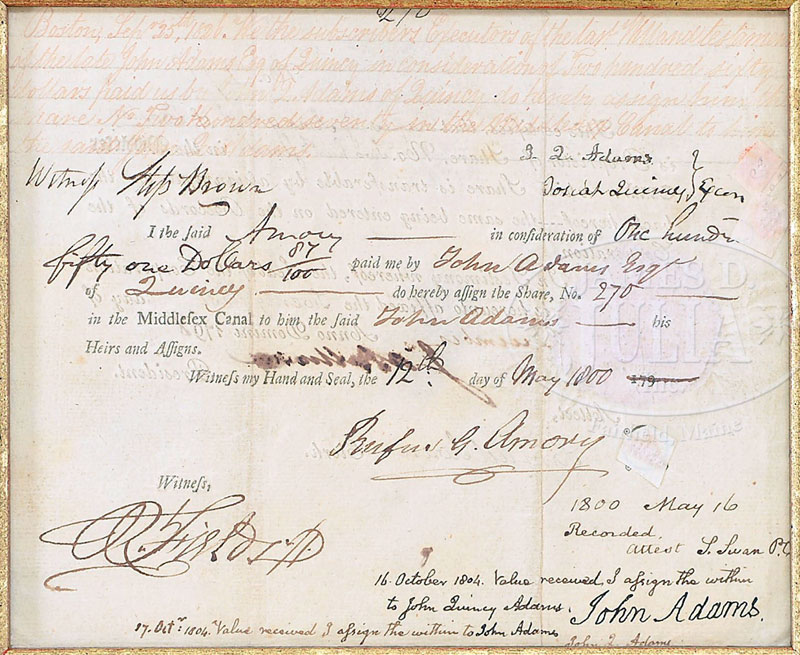 270
Boston, Sep 25th, 1826. We the subscribers Executors of the last Will and testament
of the late John Adams Esq of Quincy in consideration of Two hundred sixty
dollars paid us by John Q. Adams of Quincy do hereby assign him the
share No. Two hundred seventy in the Middlesex Canal to
the said
J. Q. Adams
Witness Brown
Josiah Quincy } Exors
I the ſaid Amory in conſideration of One hundrd
fifty one Dollars 87/100 paid me by John Adams Esqr
of Quincy do hereby aſſign the Share, No. 270
in the Middleſex Canal to him the ſaid John Adams his
Heirs and Aſſigns.
Witneſs my Hand and Seal, the 12th day of May 1800 179
Rufus G. Amory
Witneſs,
1800 May 16
Recorded.
attest S. Swan P.C
16. October 1804. Value received, I assign the within
to John Quincy Adams. John Adams.
17. Octr. 1804. Value received I assign the within to John Adams
John Q. Adams.